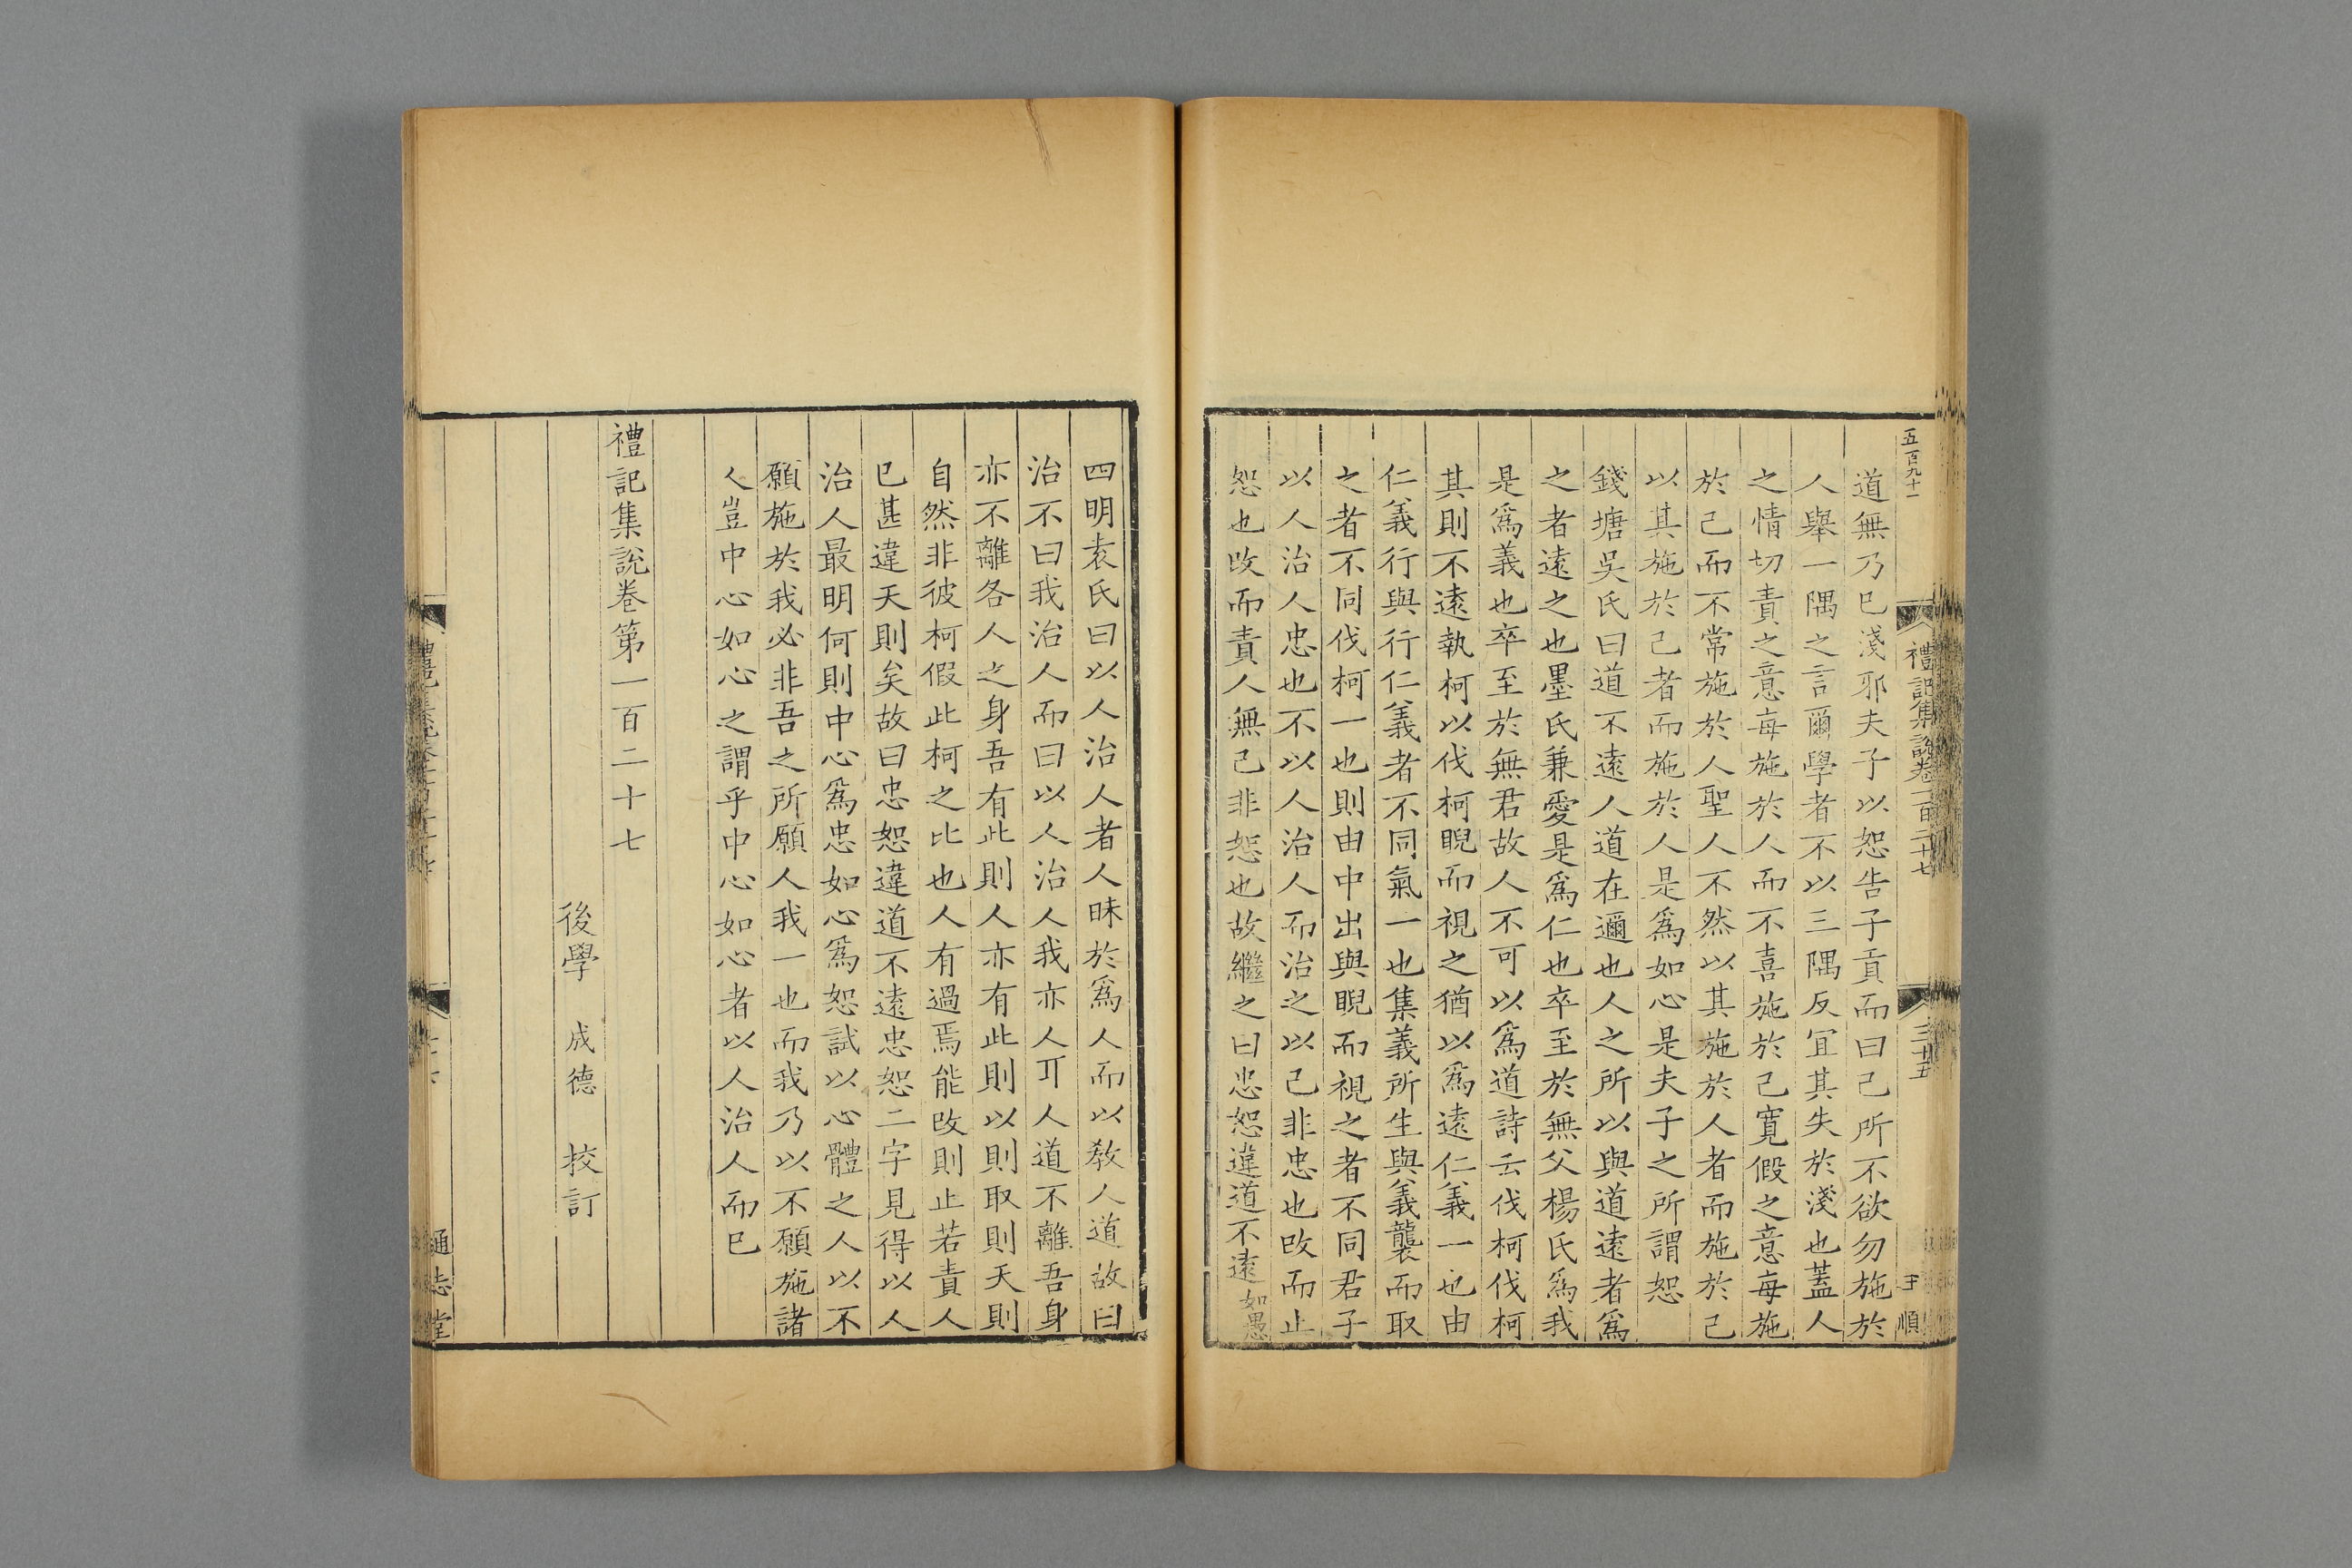 五百九十一
禮記集說卷一百二十七
三十五
王順
道無乃已淺邪夫子以恕告子貢而曰己所不欲勿施於
人舉一隅之言爾學者不以三隅反冝其失於淺也蓋人
之情切責之意每施於人而不喜施於己寛假之意每施
於己而不常施於人聖人不然以其施於人者而施於己
以其施於己者而施於人是爲如心是夫子之所謂恕
錢塘吳氏曰道不遠人道在邇也人之所以與道遠者爲
之者遠之也墨氏兼愛是爲仁也卒至於無父楊氏爲我
是爲義也卒至於無君故人不可以爲道詩云伐柯伐柯
其則不遠執柯以伐柯睨而視之猶以爲遠仁義一也由
仁義行與行仁義者不同氣一也集義所生與義襲而取
之者不同伐柯一也則由中出與睨而視之者不同君子
以人治人忠也不以人治人而治之以己非忠也改而止
恕也改而責人無已非恕也故繼之曰忠恕違道不遠如愚
四明袁氏曰以人治人者人昧於爲人而以敎人道故曰
治不曰我治人而曰以人治人我亦人耳人道不離吾身
亦不離各人之身吾有此則人亦有此則以則取則天則
自然非彼柯假此柯之比也人有過焉能改則止若責人
已甚違天則矣故曰忠恕違道不遠忠恕二字見得以人
治人最明何則中心爲忠如心爲恕試以心體之人以不
願施於我必非吾之所願人我一也而我乃以不願施諸
人豈中心如心之謂乎中心如心者以人治人而已
禮記集說卷第一百二十七
後學 成德 挍訂
通志堂